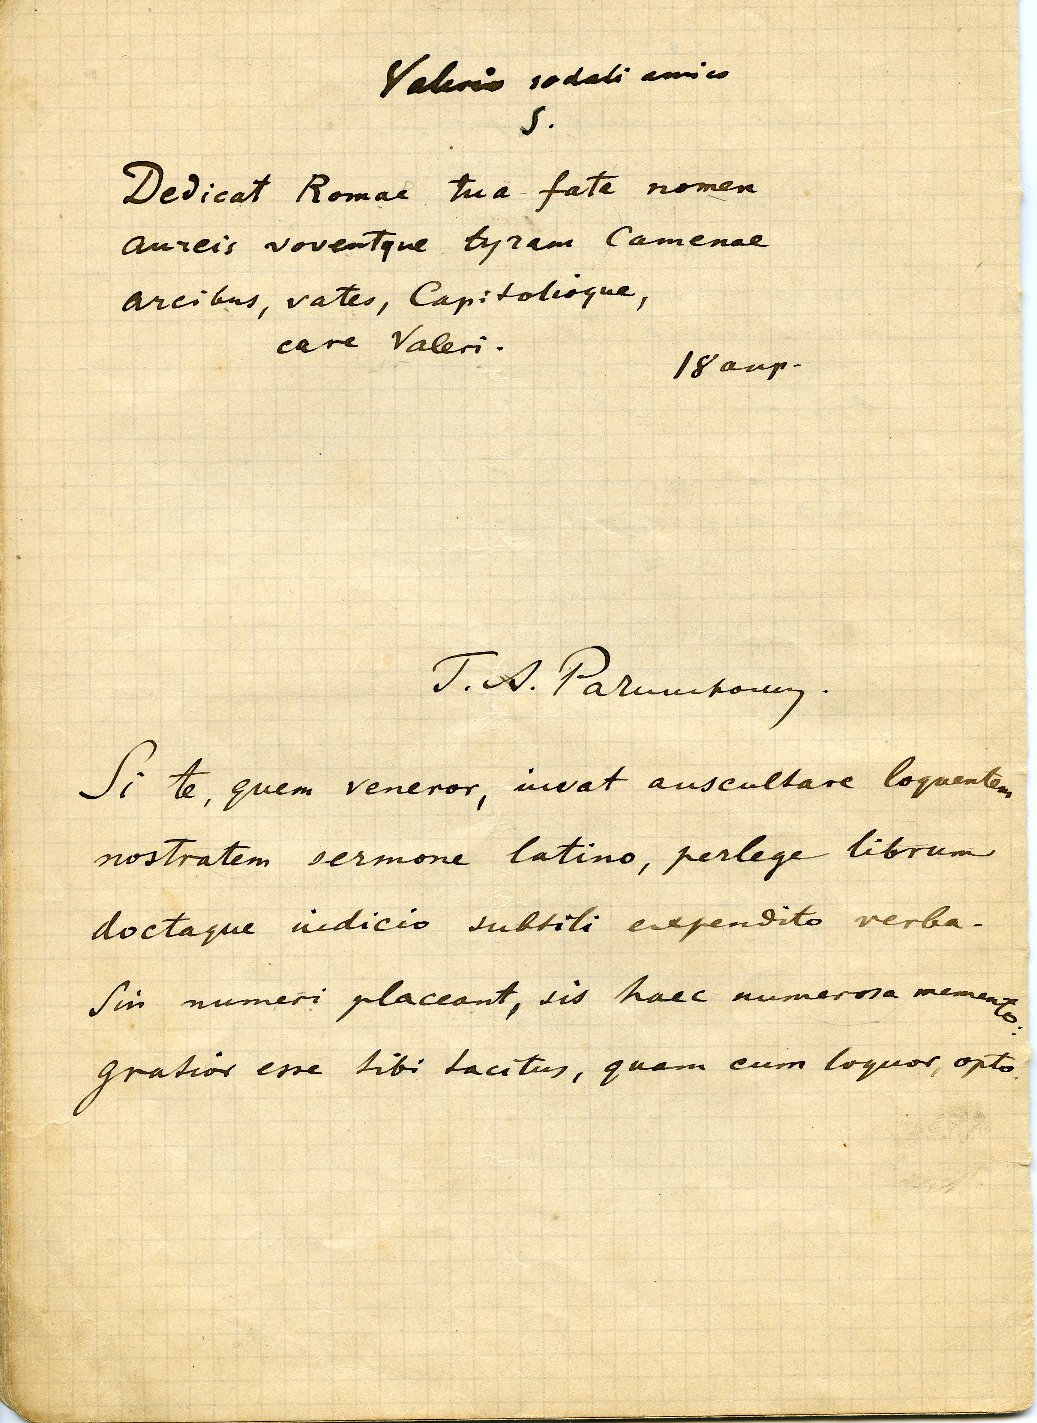 Valerio sodali amico
S.
Dedicat Romae tua fate nomen
aureis voventque lyram Camenae
arcibus, vates, Capitolioque,
care Valeri.
18 апр.
Г. А. Рачинскому.
Si te, quem veneror, iuvat auscultare loquentem
nostratem sermone latino, perlege librum
doctaque iudicio subtili expendito verba.
Sin numeri placeant, sis haec numerosa memento:
gratior esse tibi tacitus, quam cum loquor, opto.